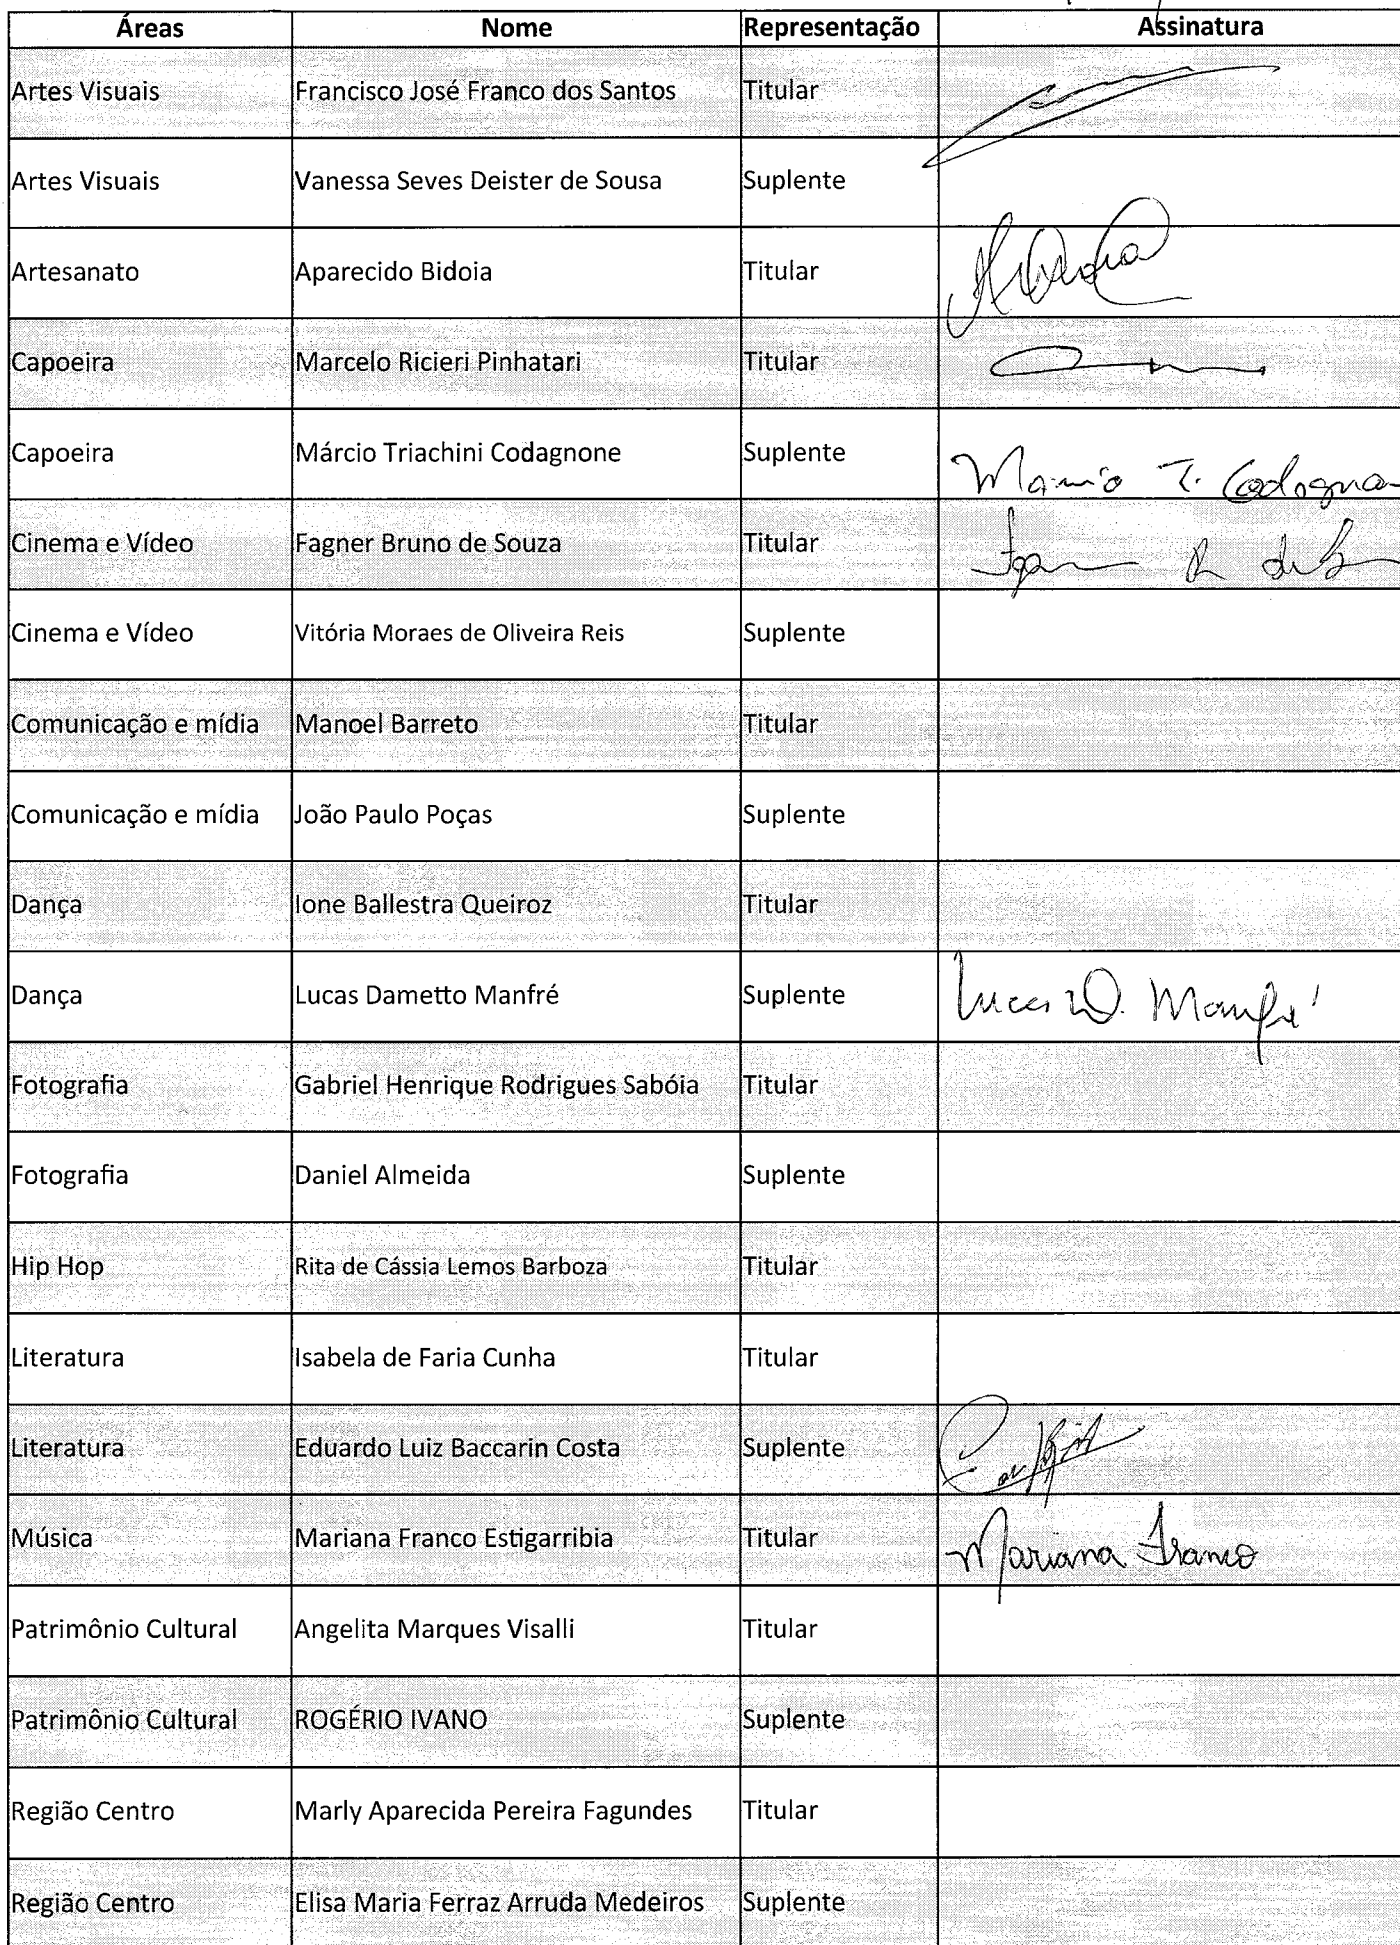 Áreas Nome Representação Assinatura
Artes Visuais Francisco José Franco dos Santos Titular
Artes Visuais Vanessa Seves Deister de Sousa Suplente
Artesanato Aparecido Bidoia Titular
Capoeira Marcelo Ricieri Pinhatari Titular
Capoeira Márcio Triachini Codagnone Suplente Marcio T. Codagnon
Cinema e Vídeo Fagner Bruno de Souza Titular
Cinema e Vídeo Vitória Moraes de Oliveira Reis Suplente
Comunicação e mídia Manoel Barreto Titular
Comunicação e mídia João Paulo Poças Suplente
Dança Ione Ballestra Queiroz Titular
Dança Lucas Dametto Manfré Suplente Lucas D. Manfré
Fotografia Gabriel Henrique Rodrigues Sabóia Titular
Fotografia Daniel Almeida Suplente
Hip Hop Rita de Cássia Lemos Barboza Titular
Literatura Isabela de Faria Cunha Titular
Literatura Eduardo Luiz Baccarin Costa Suplente
Música Mariana Franco Estigarribia Titular Mariana Franco
Patrimônio Cultural Angelita Marques Visalli Titular
Patrimônio Cultural ROGÉRIO IVANO Suplente
Região Centro Marly Aparecida Pereira Fagundes Titular
Região Centro Elisa Maria Ferraz Arruda Medeiros Suplente